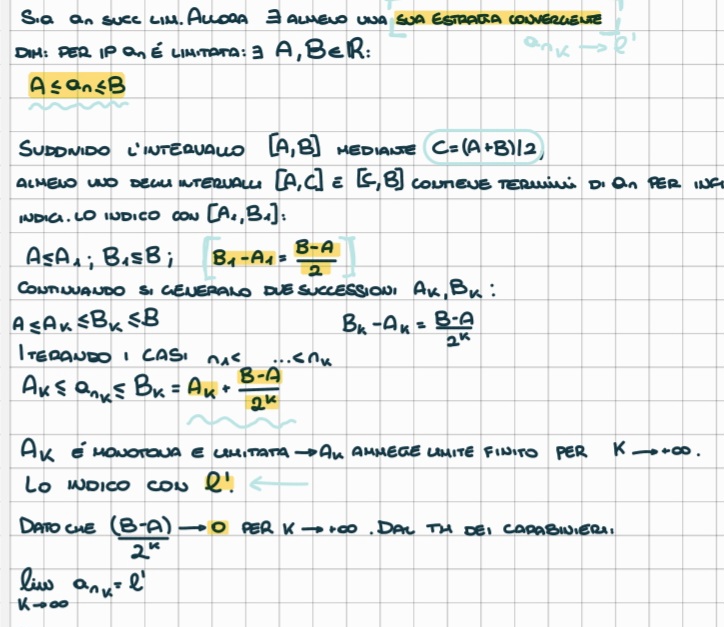 Sia an succ lim. Allora ∃ almeno una sua estratta convergente
a_{n_K} → l'
Dim: per ip an é limitata: ∃ A, B∈ℝ:
A ≤ an ≤ B
Suddivido l'intervallo [A,B] mediante C=(A+B)/2,
almeno uno degli intervalli [A,C] e [C,B] contiene termini di an per inf
indici. Lo indico con [A₁,B₁]:
A≤A₁; B₁≤B; [B₁-A₁ = \frac{B-A}{2}]
Continuando si generano due successioni A_K, B_K:
A ≤ A_K ≤ B_K ≤ B B_K - A_K = \frac{B-A}{2^K}
Iterando i casi n₁< ...<n_K
A_K ≤ a_{n_K} ≤ B_K = A_K + \frac{B-A}{2^K}
A_K é monotona e limitata → A_K ammege limite finito per K → +∞.
Lo indico con l'.
Dato che \frac{(B-A)}{2^K} → 0 per K → +∞. Dal th dei carabinieri:
lim_{K→∞} a_{n_K} = l'